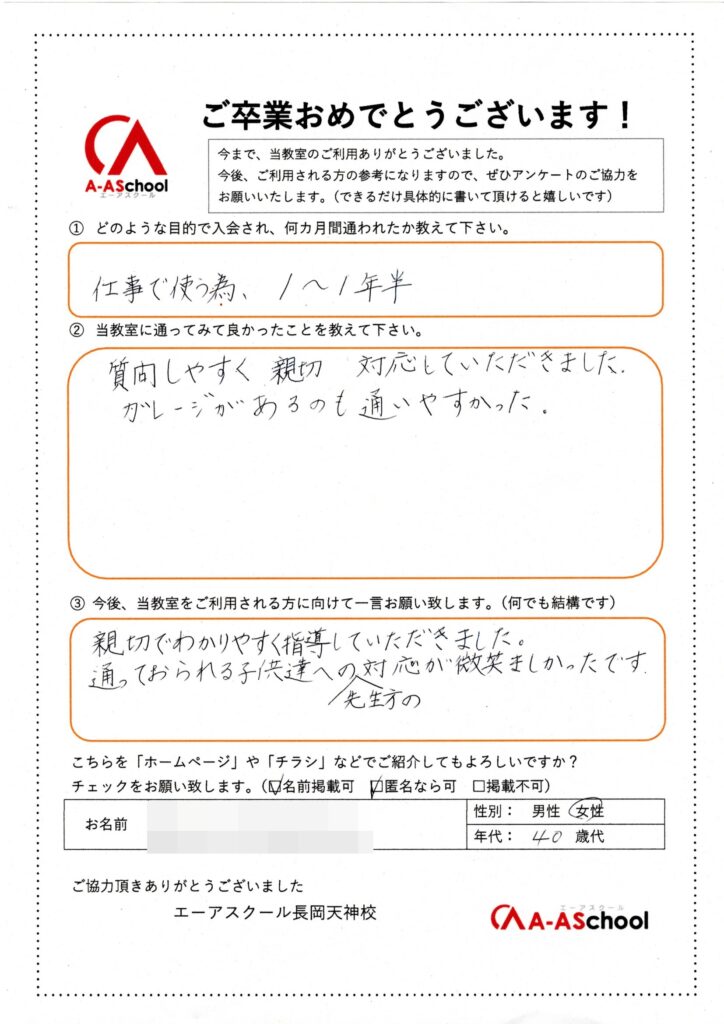 ご卒業おめでとうございます！
A-ASchool
エーアスクール
今まで、当教室のご利用ありがとうございました。
今後、ご利用される方の参考になりますので、ぜひアンケートのご協力を
お願いいたします。（できるだけ具体的に書いて頂けると嬉しいです）
① どのような目的で入会され、何カ月間通われたか教えて下さい。
仕事で使う為、1〜1年半
② 当教室に通ってみて良かったことを教えて下さい。
質向しやすく 親切 対応していただきました。
ガレージがあるのも通いやすかった。
③ 今後、当教室をご利用される方に向けて一言お願い致します。（何でも結構です）
親切でわかりやすく指導していただきました。
通っておられる子供達への対応が微笑ましかったです.
先生方の
こちらを「ホームページ」や「チラシ」などでご紹介してもよろしいですか？
チェックをお願い致します。（☑名前掲載可 ☑匿名なら可 □掲載不可）
お名前
性別： 男性 女性
年代： 40 歳代
ご協力頂きありがとうございました
エーアスクール長岡天神校
エーアスクール
A-ASchool